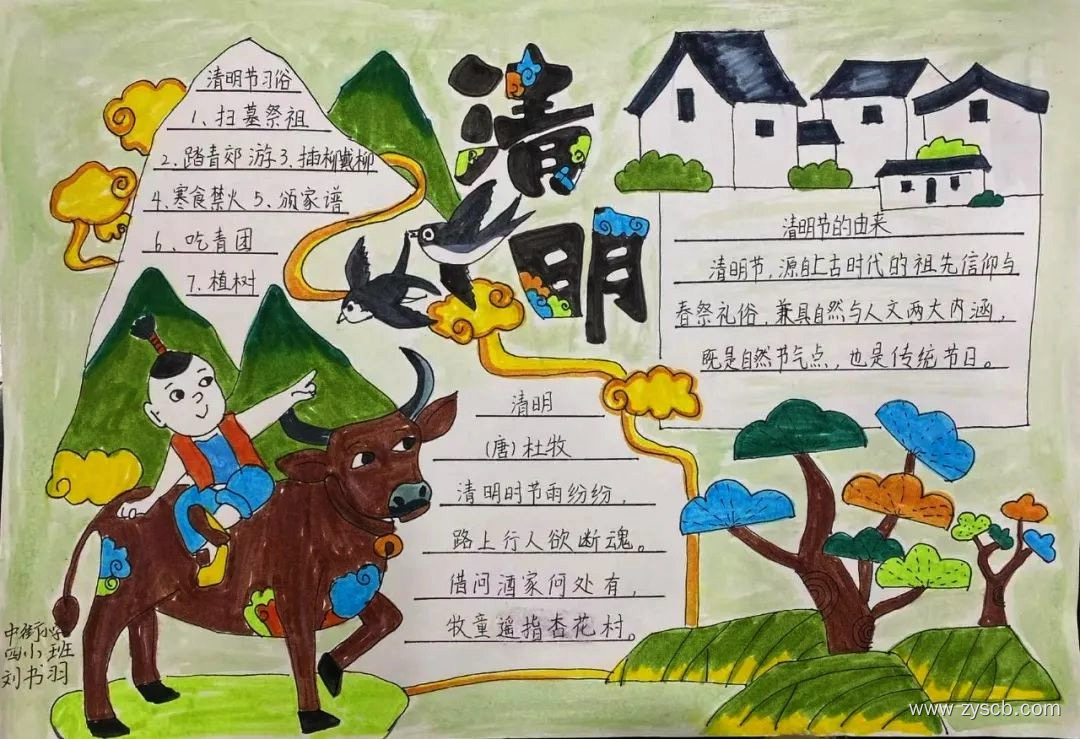 清明
清明节习俗
1、扫墓祭祖
2、踏青郊游 3、插柳戴柳
4、寒食禁火 5、颁家谱
6、吃青团
7、植树
清明节的由来
清明节,源自上古时代的祖先信仰与
春祭礼俗,兼具自然与人文两大内涵,
既是自然节气点,也是传统节日。
清明
(唐)杜牧
清明时节雨纷纷,
路上行人欲断魂。
借问酒家何处有,
牧童遥指杏花村。
中街小学
四小班
刘书羽
www.zyscb.com